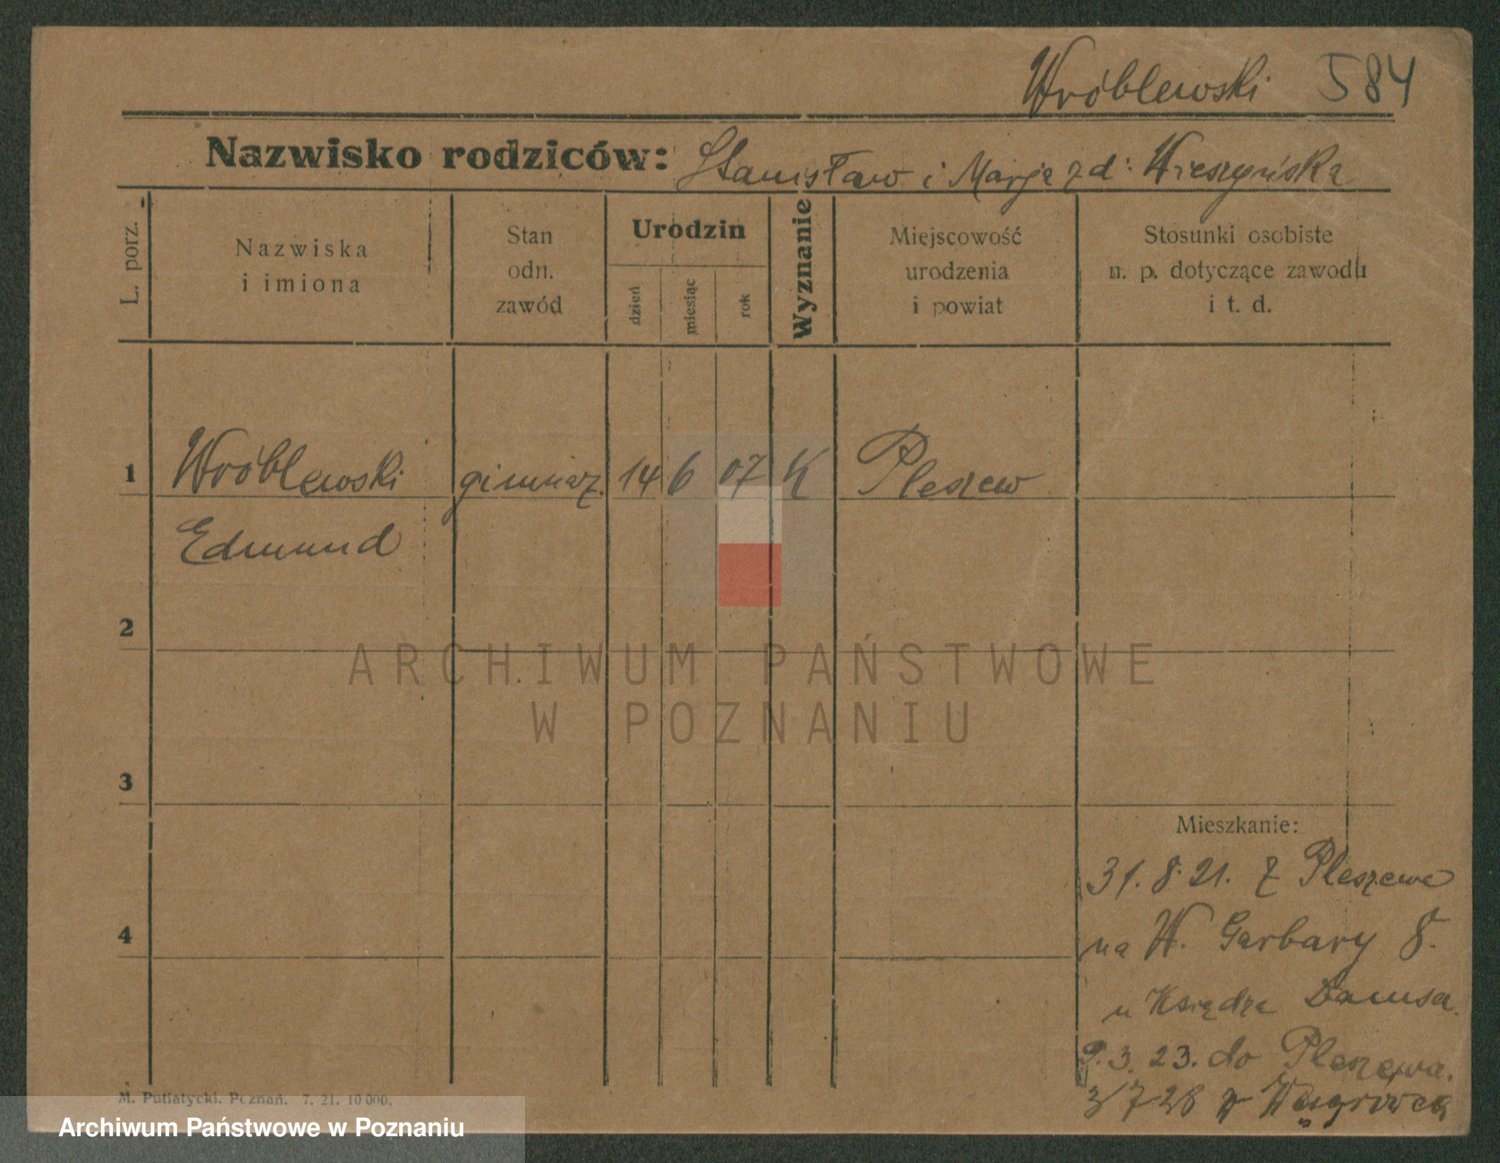 Wróblewski 584
Nazwisko rodziców: Stanisław i Marja zd: Wieszyńska
L. porz.
Nazwiska
i imiona
Stan
odn.
zawód
Urodzin
dzień
miesiąc
rok
Wyznanie
Miejscowość
urodzenia
i powiat
Stosunki osobiste
n. p. dotyczące zawodu
i t. d.
1 Wróblewski gimnaz. 14 6 07 K Pleszew
Edmund
2
ARCHIWUM PAŃSTWOWE
W POZNANIU
3
Mieszkanie:
31.8.21. z Pleszewa
4
na W. Garbary 8.
u Księdza
9.3.23. do Pleszewa.
3/7 28
M. Putiatycki, Poznań. 7. 21. 10000.
Archiwum Państwowe w Poznaniu